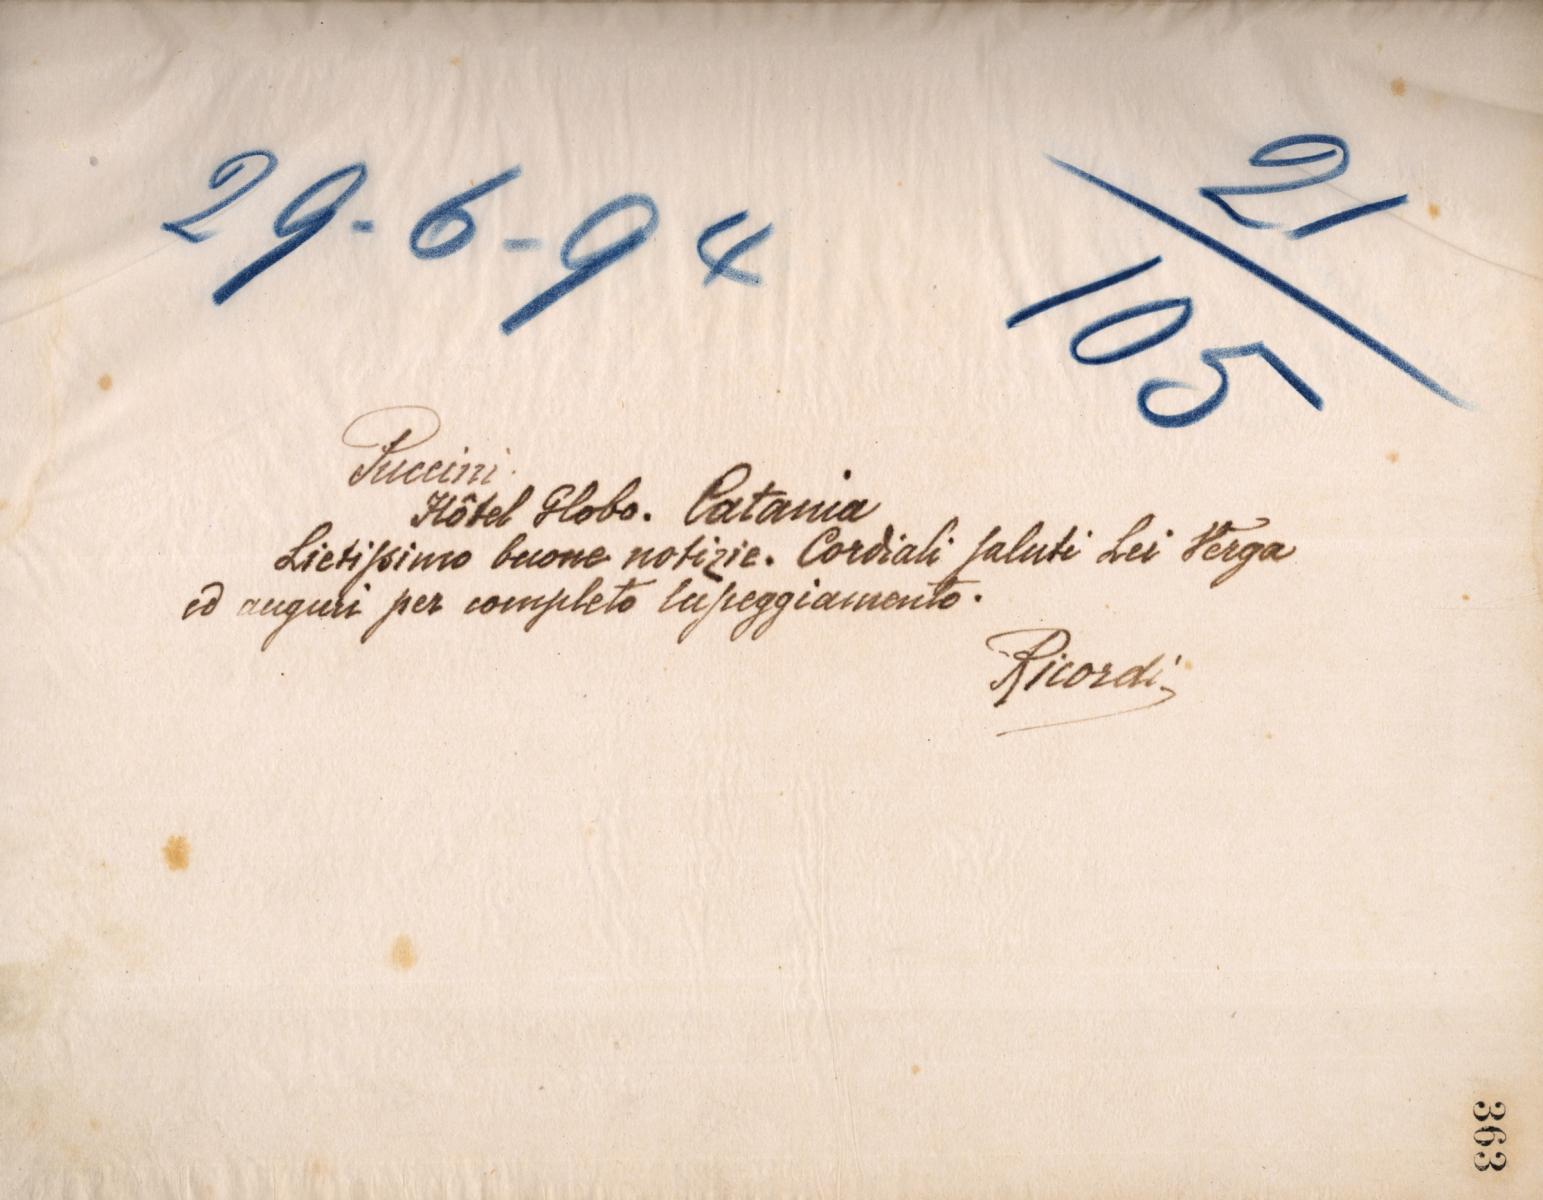 29-6-94
21
105
Puccini
Hôtel Globo. Catania
Lietissimo buone notizie. Cordiali saluti Lei Verga
ed auguri per completo lupeggiamento.
Ricordi
363